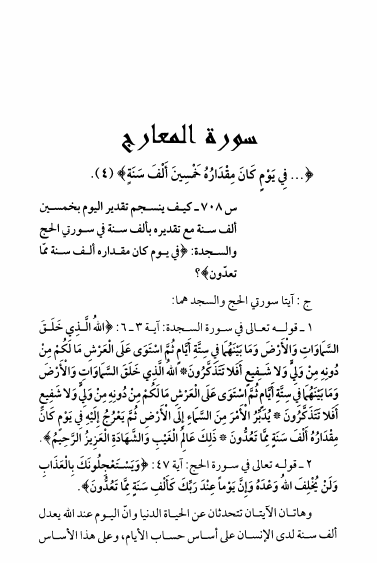 سورة المعارج
﴿... فِي يَوْمٍ كَانَ مِقْدَارُهُ خَمْسِينَ أَلْفَ سَنَةٍ﴾ (٤).
س ٧٠٨ ـ كيف ينسجم تقدير اليوم بخمسين
ألف سنة مع تقديره بألف سنة في سورتي الحج
والسجدة: ﴿في يوم كان مقداره ألف سنة ممّا
تعدّون﴾؟
ج : آيتا سورتي الحج والسجد هما:
١ ـ قوله تعالى في سورة السجدة: آية ٣ ـ ٦: ﴿اللهُ الَّذِي خَلَقَ
السَّمَاوَاتِ وَالْأَرْضَ وَمَا بَيْنَهُمَا فِي سِتَّةِ أَيَّامٍ ثُمَّ اسْتَوَى عَلَى الْعَرْشِ مَا لَكُمْ مِنْ
دُونِهِ مِنْ وَلِيٍّ وَلَا شَفِيعٍ أَفَلَا تَتَذَكَّرُونَ* اللهُ الَّذِي خَلَقَ السَّمَاوَاتِ وَالْأَرْضَ
وَمَا بَيْنَهُمَا فِي سِتَّةِ أَيَّامٍ ثُمَّ اسْتَوَى عَلَى الْعَرْشِ مَا لَكُمْ مِنْ دُونِهِ مِنْ وَلِيٍّ وَلَا شَفِيعٍ
أَفَلَا تَتَذَكَّرُونَ * يُدَبِّرُ الْأَمْرَ مِنَ السَّمَاءِ إِلَى الْأَرْضِ ثُمَّ يَعْرُجُ إِلَيْهِ فِي يَوْمٍ كَانَ
مِقْدَارُهُ أَلْفَ سَنَةٍ مِّمَّا تَعُدُّونَ * ذَلِكَ عَالِمُ الْغَيْبِ وَالشَّهَادَةِ الْعَزِيزُ الرَّحِيمُ﴾.
٢ ـ قوله تعالى في سورة الحج: آية ٤٧: ﴿وَيَسْتَعْجِلُونَكَ بِالْعَذَابِ
وَلَنْ يُخْلِفَ اللهُ وَعْدَهُ وَإِنَّ يَوْماً عِنْدَ رَبِّكَ كَأَلْفِ سَنَةٍ مِمَّا تَعُدُّونَ﴾.
وهاتان الآيتان تتحدثان عن الحياة الدنيا وانّ اليوم عند الله يعدل
ألف سنة لدى الإنسان على أساس حساب الأيام، وعلى هذا الأساس